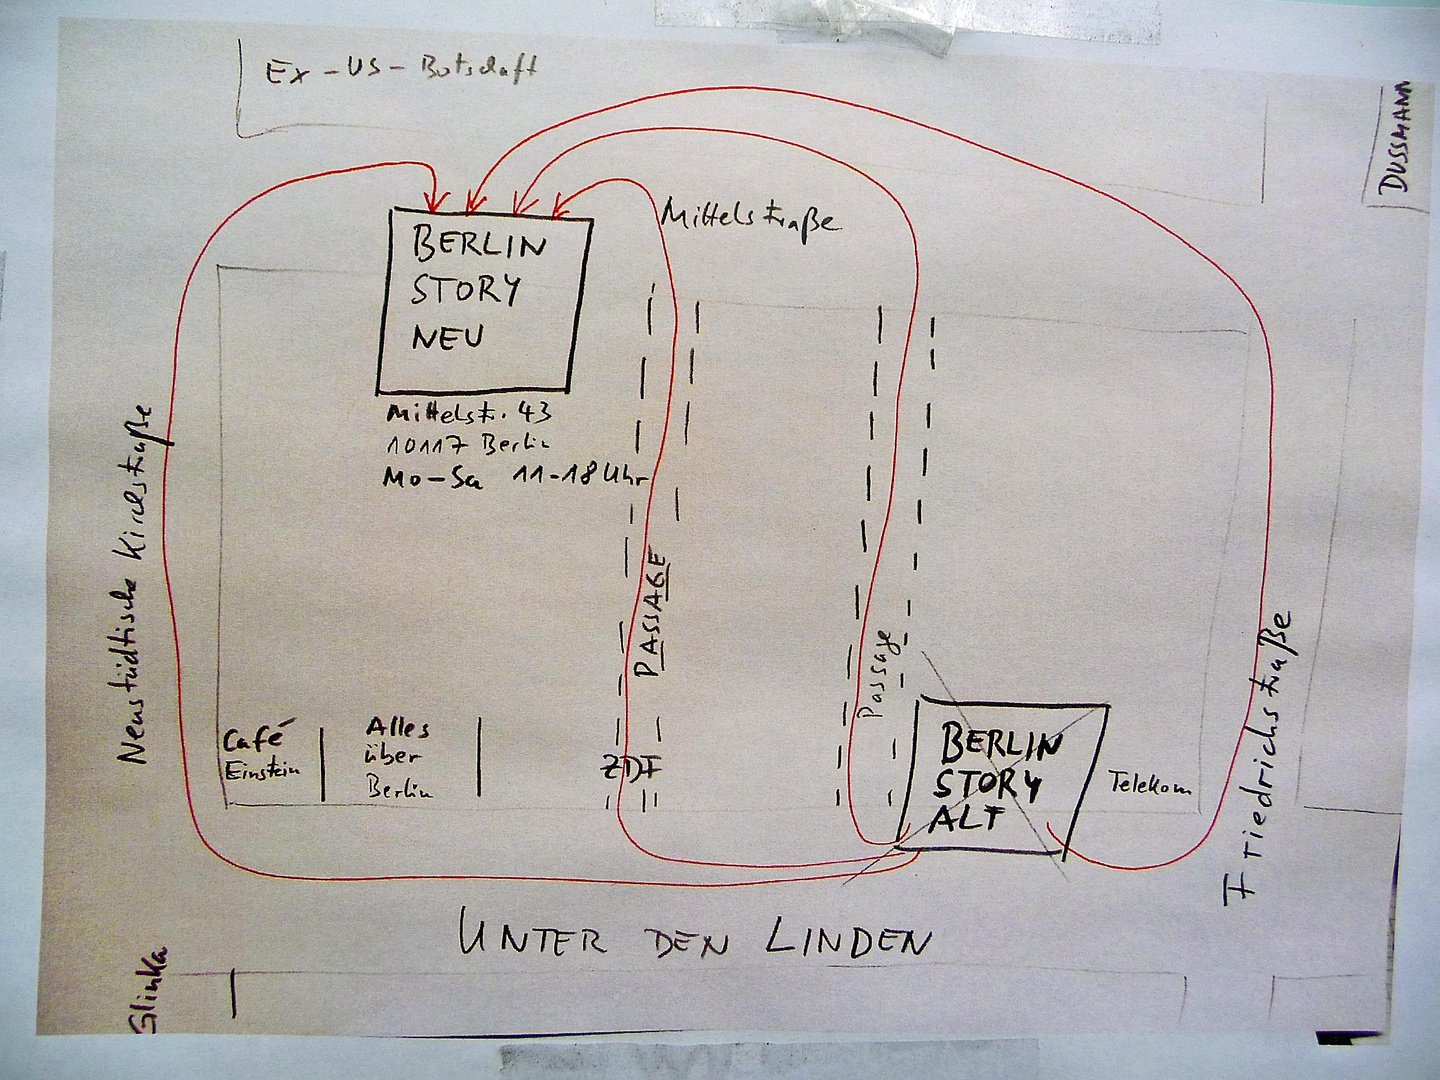 Ex-US-Botschaft
DUSSMANN
Mittelstraße
BERLIN
STORY
NEU
Mittelstr. 43
10117 Berlin
Mo-Sa 11-18 Uhr
Neustädtische Kirchstraße
PASSAGE
Passage
Café
Einstein
Alles
über
Berlin
ZDF
BERLIN
STORY
ALT
Telekom
Friedrichstraße
UNTER DEN LINDEN
Glinka